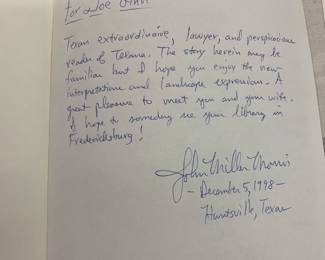 for Joe
Texan extraordinaire, lawyer, and perspicacious
reader of Texana. The story herein may be
familiar but I hope you enjoy the new
interpretation and landscape expression. A
great pleasure to meet you and your wife.
I hope to someday see your library in
Fredericksburg!
John Miller Morris
- December 5, 1998 -
Huntsville, Texas